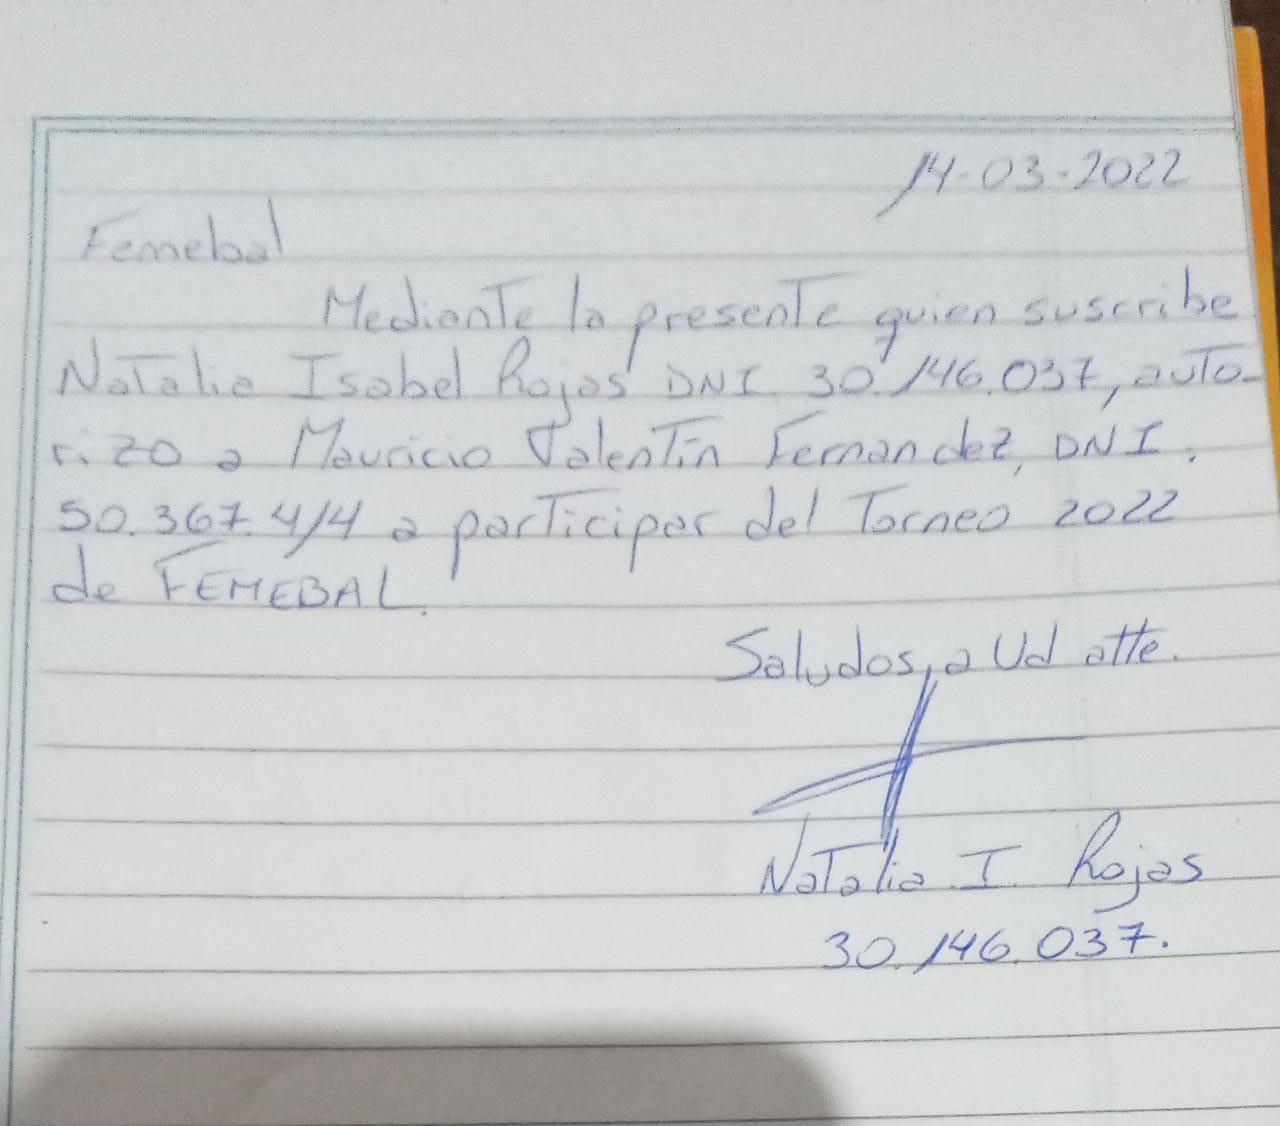 14-03-2022
Femebal
Mediante la presente quien suscribe
Natalia Isabel Rojas DNI 30.146.037, auto-
rizo a Mauricio Valentín Fernandez, DNI.
50.367.414 a participar del Torneo 2022
de FEMEBAL.
Saludos, a Ud atte.
Natalia I. Rojas
30.146.037.